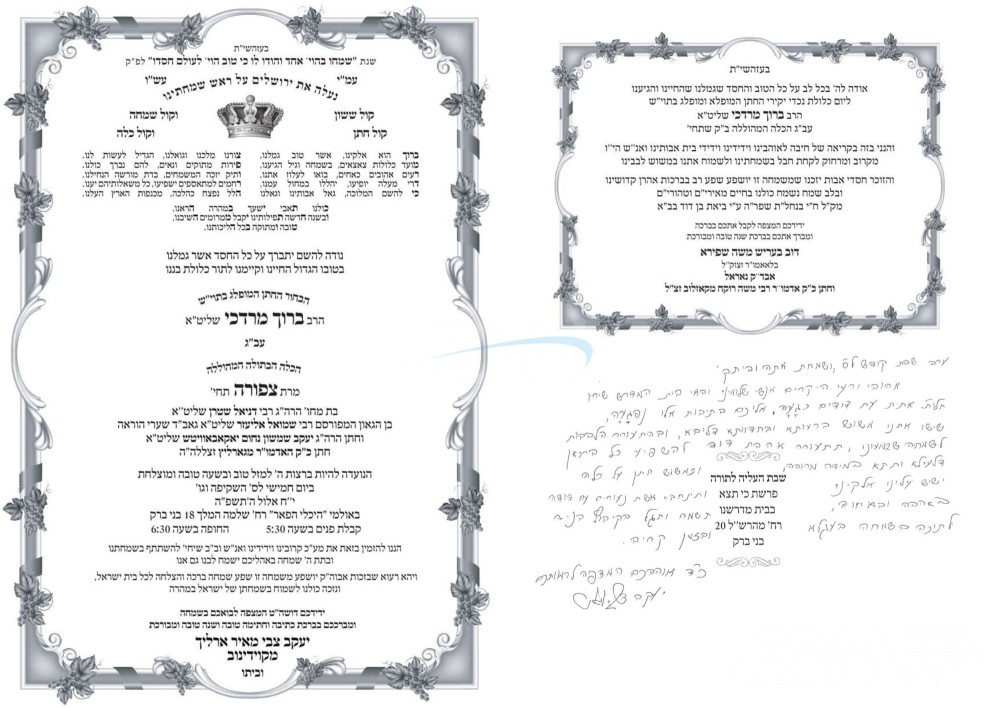 בעזהשי"ת
שנת "שמחו בהוי' אהד והודו לו כי טוב הוי' לעולם חסדו" לפ"ק
עמ"י עש"ו
נעלה את ירושלים על ראש שמחתינו
קול ששון וקול שמחה
קול חתן וקול כלה
ברוך הוא אלקינו, אשר טוב גמלנו,
מועד כלולות צאצאים, בשמחה וגיל הגיענו,
רעים אהובים כאחים, בואו לעלוז אתנו,
דרי מעלה יופיעו, יהללו במחול עמנו,
כי להשם המלוכה, גאל אבותינו וגאלנו
צורנו מלכנו וגואלנו, הגדיל לעשות לנו,
פירות מתוקים ונאים, להם נברך כולנו,
ותיק יזכה המשמחם, בדת מורשה הנחילנו,
רחמים למתאספים ישפיעו, כל משאלותיהם יענו,
הלל נפצח כהלכה, מכנפות הארץ העלנו,
כולנו תאבי ישעך במהרה הראנו,
ובשנה חדשה תפילותינו יקבל ממרומים השיבנו,
טובה ומתוקה בכל הליכותנו.
נודה להשם יתברך על כל החסד אשר גמלנו
בטובו הגדול החיינו וקיימנו לתור כלולת בננו
הבחור החתן המופלג בתוי"ש
הרב ברוך מרדכי שליט"א
עב"ג
הכלה הבתולה המהוללה
מרת צפורה תחי'
בת מחו' הרה"ג רבי דניאל שטרן שליט"א
בן הגאון המפורסם רבי שמואל אליעזר שליט"א גאב"ד שערי הוראה
וחתן הרה"ג יעקב שמשון נחום יאקאבאוויטש שליט"א
חתן כ"ק האדמו"ר מגארליץ זצללה"ה
הנועדה להיות ברצות ה' למזל טוב ובשעה טובה ומוצלחת
ביום חמישי לס' השקיפה וגו'
י"ח אלול ה'תשפ"ה
באולמי "היכלי הפאר" רח' שלמה המלך 18 בני ברק
קבלת פנים בשעה 5:30 החופה בשעה 6:30
הננו להזמין בזאת את מע"כ קרובינו וידידינו ואנ"ש וב"ב שיחי' להשתתף בשמחתנו
ובתת ה' שמחה באהליכם ישמח לבנו גם אנו
ויהא רעוא שבזכות אבוה"ק יושפע משמחה זו שפע שמחה ברכה והצלחה לכל בית ישראל,
ונזכה כולנו לשמוח בשמחתן של ישראל במהרה
ידידכם דושה"ט המצפה לבואכם בשמחה
ומברככם בברכת כתיבה וחתימה טובה ושנה טובה ומבורכת
יעקב צבי מאיר ארליך
מקוידינוב
וביתו
בעזהשי"ת
אודה לה' בכל לב על כל הטוב והחסד שגמלנו שהחיינו והגיענו
ליום כלולת נכדי יקירי החתן המופלא ומופלג בתוי"ש
הרב ברוך מרדכי שליט"א
עב"ג הכלה המהוללה ב"ק שתחי'
והנני בזה בקריאה של חיבה לאוהבינו וידידינו וידידי בית אבותינו ואנ"ש הי"ו
מקרוב ומרחוק לקחת חבל בשמחתינו ולשמוח אתנו במשוש לבבינו
והזוכר חסדי אבות יזכנו שמשמחה זו יושפע שפע רב בברכת אהרן קדושינו
ובלב שמח נשמח כולנו בחיים מאירי"ם וטהורי"ם
מק"ל ח"י בנחל"ת שפר"ה ע"י ביאת בן דוד בב"א
ידידכם המצפה לקבל אתכם בברכה
ומברך אתכם בברכת שנה טובה ומבורכת
דוב בעריש משה שפירא
בלאאמו"ר זצוק"ל
אבד"ק נאראל
וחתן כ"ק אדמו"ר רבי משה רוקח מקאזלוב זצ"ל
ערב שבת קודש לס' ושמחת אתה וביתך
אהובי ורעי היקרים אנשי שלומינו ובאי בית המדרש שיחי'
ששו אתנו משוש ברעותא ובחדוותא דליבא, ובהתעורר הלבבות
לשמחה שבמעונו, תתעורר אהבת דודי להשפיע כל
ישיש עלינו אלקינו
באהבה ובאחוה,
שבת העליה לתורה
פרשת כי תצא
בבית מדרשנו
רח' מהרש"ל 20
בני ברק
ובמשוש חתן על כלה
ובזמן קרוב.